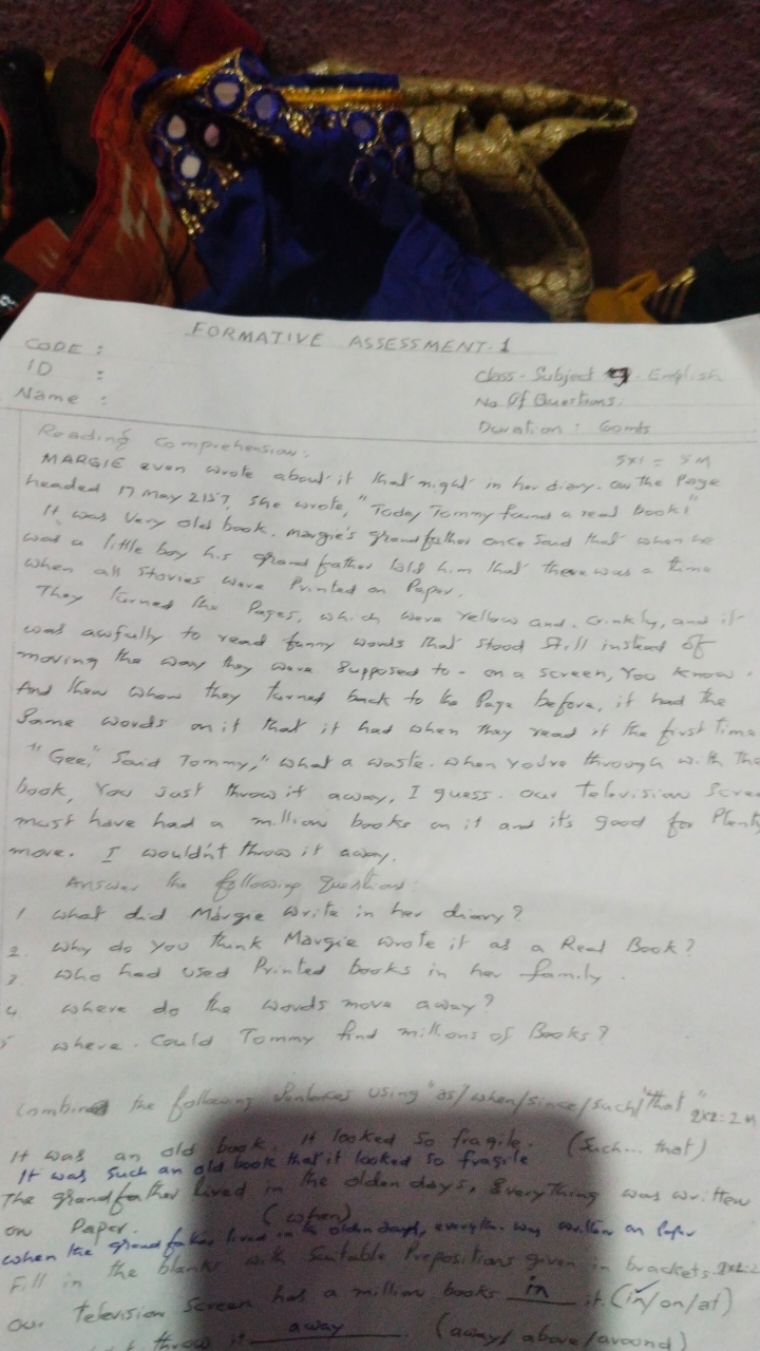 FORMATIVE ASSESSMENT-1
CODE :
ID :
Name :
Class - Subject 9. English
No Of Questions:
Duration : 60mts
Reading Comprehension: 5x1 = 5M
MARGIE even wrote about it that night in her diary. On the Page
headed 17 May 2157, she wrote, "Today Tommy found a real book!"
It was very old book. Margie's grandfather once said that when he
was a little boy his grand father told him that there was a time
when all stories were Printed on Paper.
They turned the Pages, which were yellow and crinkly, and it
was awfully to read funny words that stood still instead of
moving the way they were supposed to - on a screen, You know.
And then when they turned back to the Page before, it had the
same words on it that it had when they read it the first time
"Gee," Said Tommy," what a waste. when you're through with the
book, You just throw it away, I guess. our television Scree
must have had a million books on it and it's good for Plenty
more. I wouldn't throw it away.
Answer the following questions:
1 what did Margie write in her diary?
2. Why do you think Margie wrote it as a Real Book?
3 who had used Printed books in her family.
4 where do the words move away?
5 where. Could Tommy find millions of Books?
Combined the following Sentences using "as/when/since/such/that" 2x1=2M
It was an old book. It looked so fragile. (Such... that)
It was such an old book that it looked so fragile
The grandfather lived in the olden days, Everything was written
on Paper. (when)
when the grand father lived in the olden days, was written on Paper
Fill in the blanks with Suitable Prepositions given in brackets.
our television Screen has a million books in it. (in/on/at)
throw it away (away/above/around)